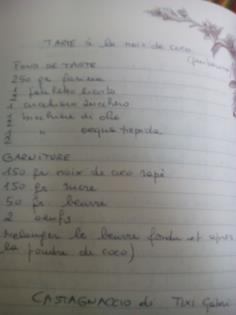 TARTE à la noix de coco
FOND DE TARTE
250 gr farina
1 pacchetto lievito
1 cucchiaio zucchero
1 bicchiere di olio
1 " acqua tiepida
GARNITURE
150 gr noix de coco rapé
150 gr sucre
50 gr beurre
2 oeufs
Mélanger le beurre fondu et après
la poudre de coco)
CASTAGNACCIO di Tixi